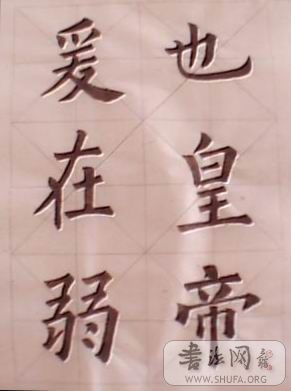 也皇帝
爰在弱
書法网
WWW.SHUFA.ORG